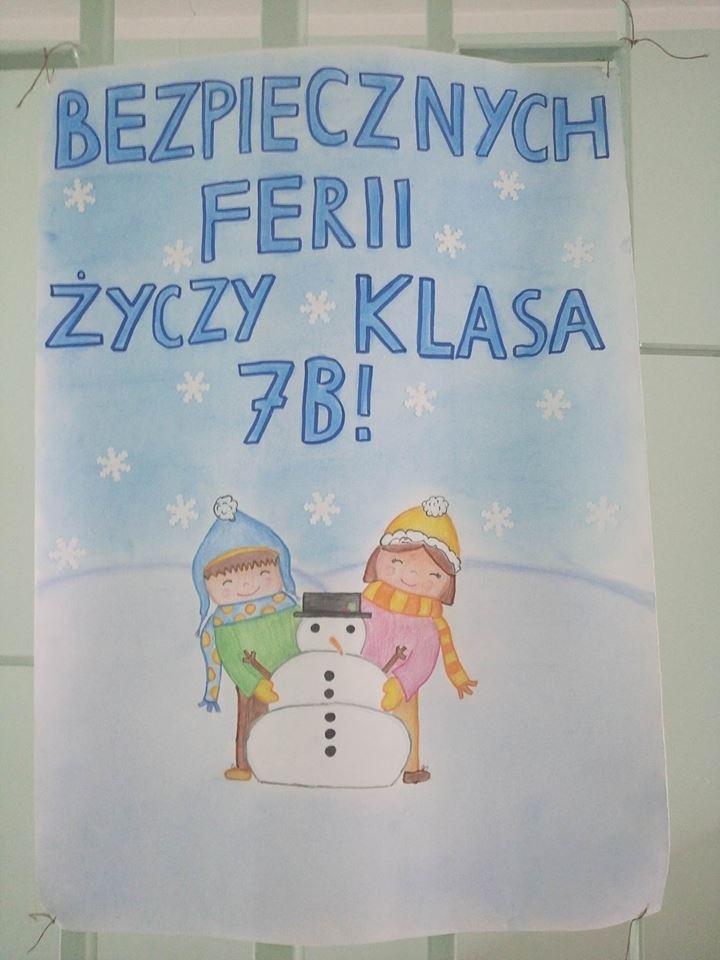 BEZPIECZNYCH
FERII
ŻYCZY KLASA
7B!